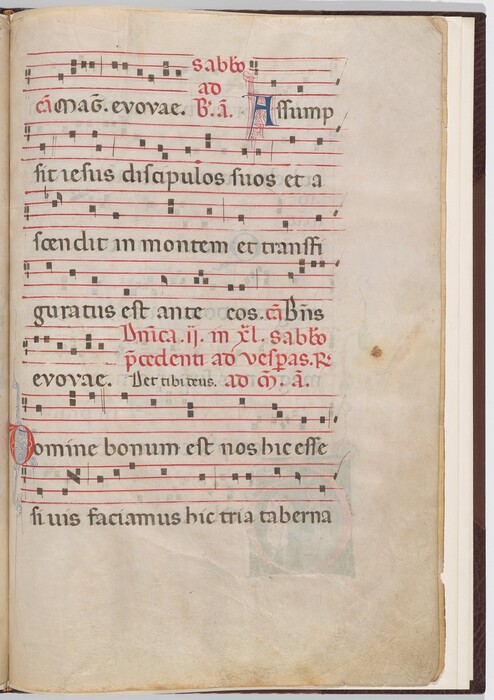 sabb̄o
ad
cā maḡ. evovae. B̄. ā. Assump
sit iesus discipulos suos et a
scendit in montem et transfi
guratus est ante eos. cā Bn̄s
Dn̄ica. ij. in xl. sabb̄o
p̄cedenti ad vesp̄as. R̄
evovae. Det tibi deus. ad m̄. ā.
Domine bonum est nos hic esse
si vis faciamus hic tria taberna